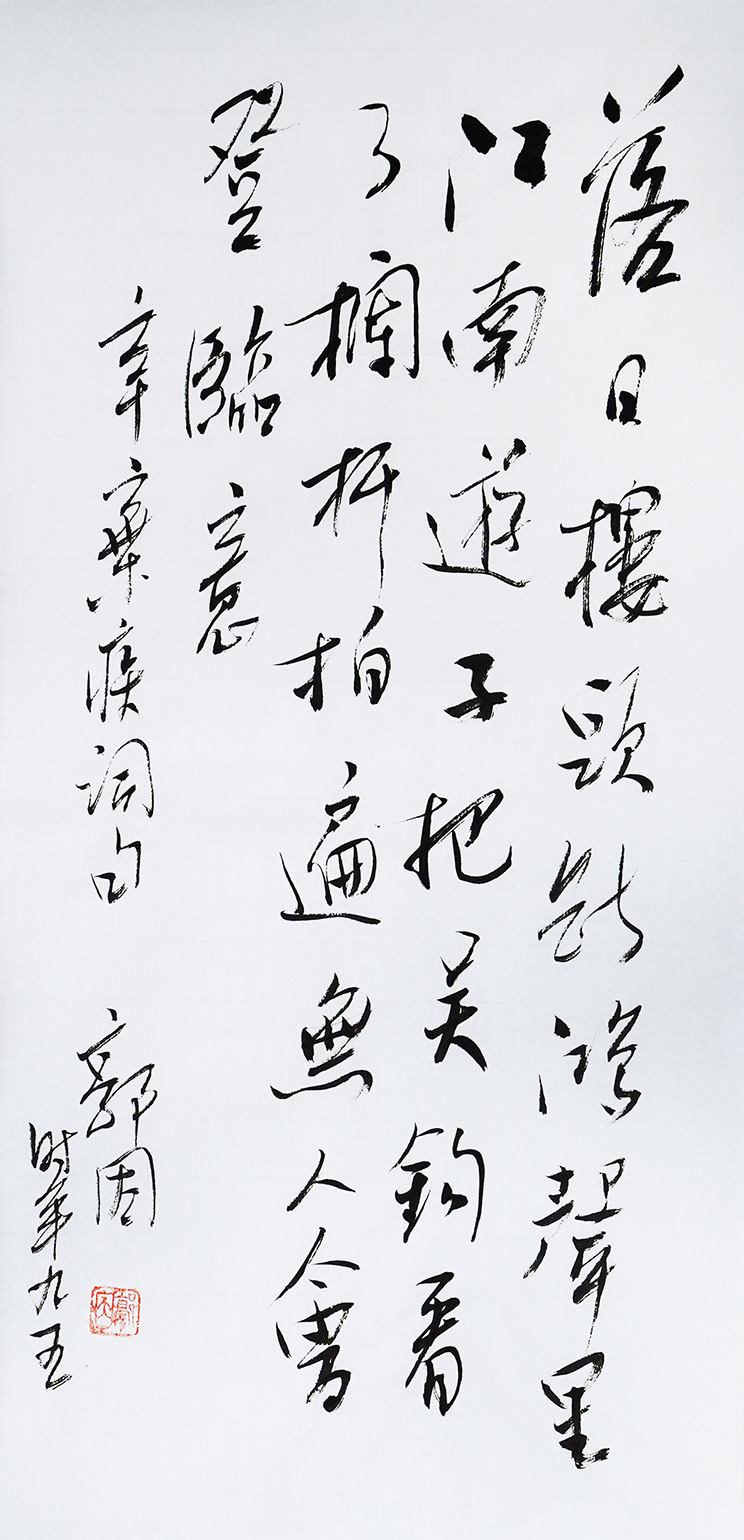 落日樓頭断鴻聲里
江南遊子把吴鈎看
了欄杆拍遍無人會
登臨意
辛棄疾詞句 郭因
时年九五
郭因